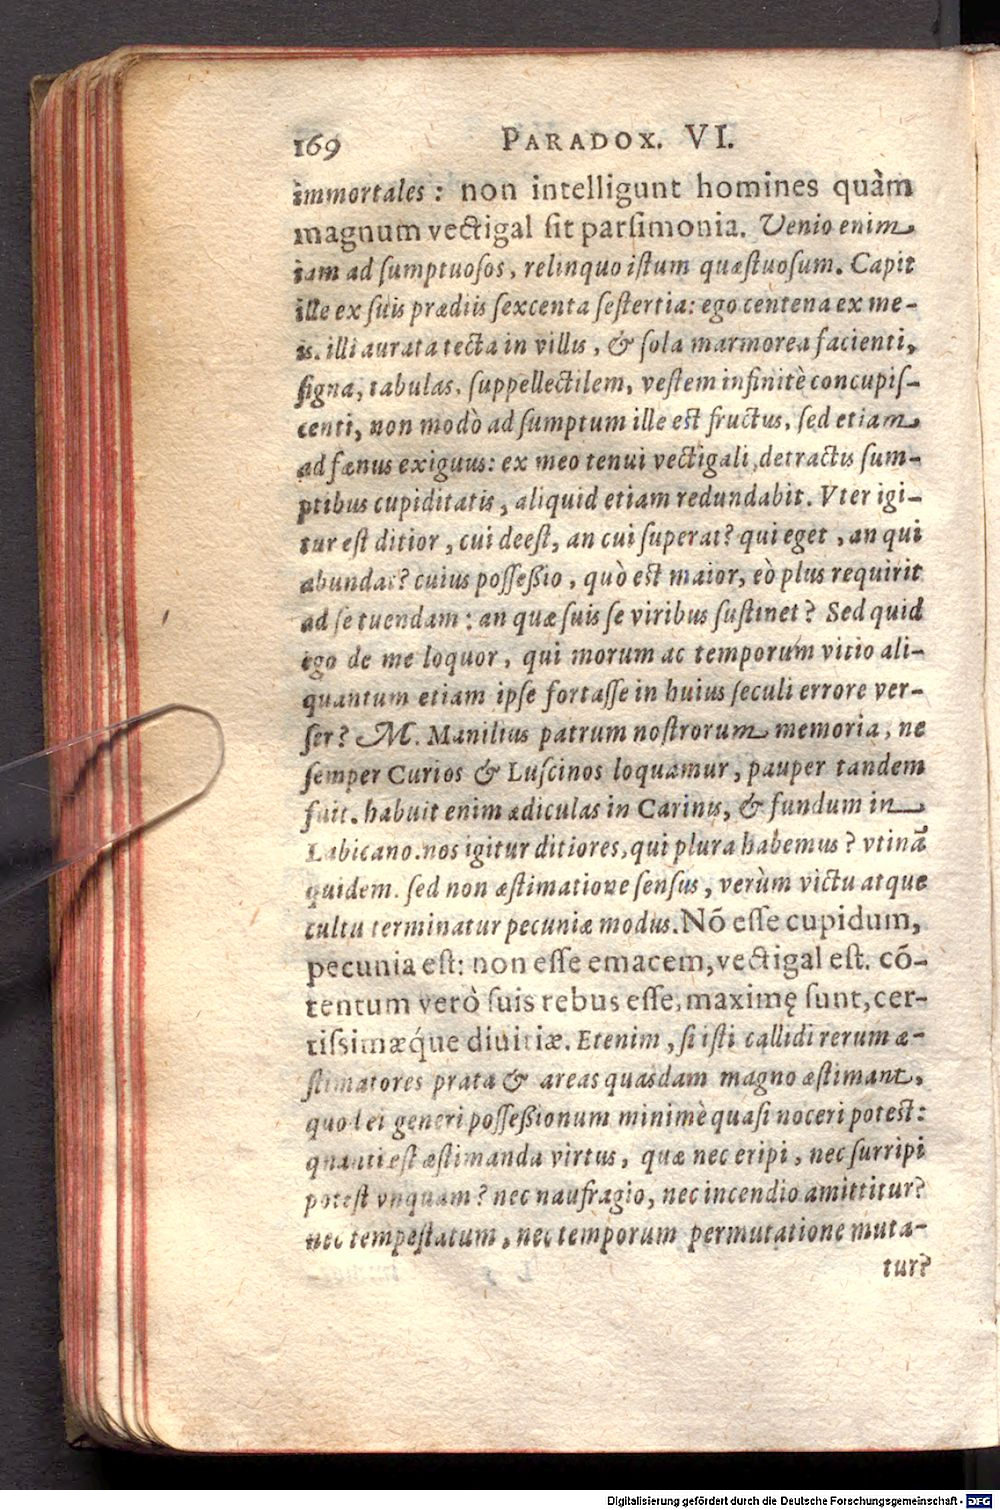 169 PARADOX. VI.
immortales: non intelligunt homines quàm
magnum vectigal sit parsimonia. Venio enim
iam ad sumptuosos, relinquo istum quæstuosum. Capit
ille ex suis prædiis sexcenta sestertia: ego centena ex me-
is. illi aurata tecta in villis, & sola marmorea facienti,
signa, tabulas, suppellectilem, vestem infinitè concupis-
centi, non modò ad sumptum ille est fructus, sed etiam
ad fænus exiguus: ex meo tenui vectigali, detractis sum-
ptibus cupiditatis, aliquid etiam redundabit. Vter igi-
tur est ditior, cui deest, an cui superat? qui eget, an qui
abundat? cuius possessio, quò est maior, eò plus requirit
ad se tuendam: an quæ suis se viribus sustinet? Sed quid
ego de me loquor, qui morum ac temporum vitio ali-
quantum etiam ipse fortasse in huius seculi errore ver-
ser? M. Manilius patrum nostrorum memoria, ne
semper Curios & Luscinos loquamur, pauper tandem
fuit. habuit enim ædiculas in Carinis, & fundum in
Labicano. nos igitur ditiores, qui plura habemus? vtinã
quidem. sed non æstimatione sensus, verùm victu atque
cultu terminatur pecuniæ modus. Nõ esse cupidum,
pecunia est: non esse emacem, vectigal est. cõ-
tentum verò suis rebus esse, maximę sunt, cer-
tissimæq́ue diuitiæ. Etenim, si isti callidi rerum æ-
stimatores prata & areas quasdam magno æstimant,
quod ei generi possessionum minimè quasi noceri potest:
quanti est æstimanda virtus, quæ nec eripi, nec surripi
potest vnquam? nec naufragio, nec incendio amittitur?
nec tempestatum, nec temporum permutatione muta-
tur?
Digitalisierung gefördert durch die Deutsche Forschungsgemeinschaft - DFG